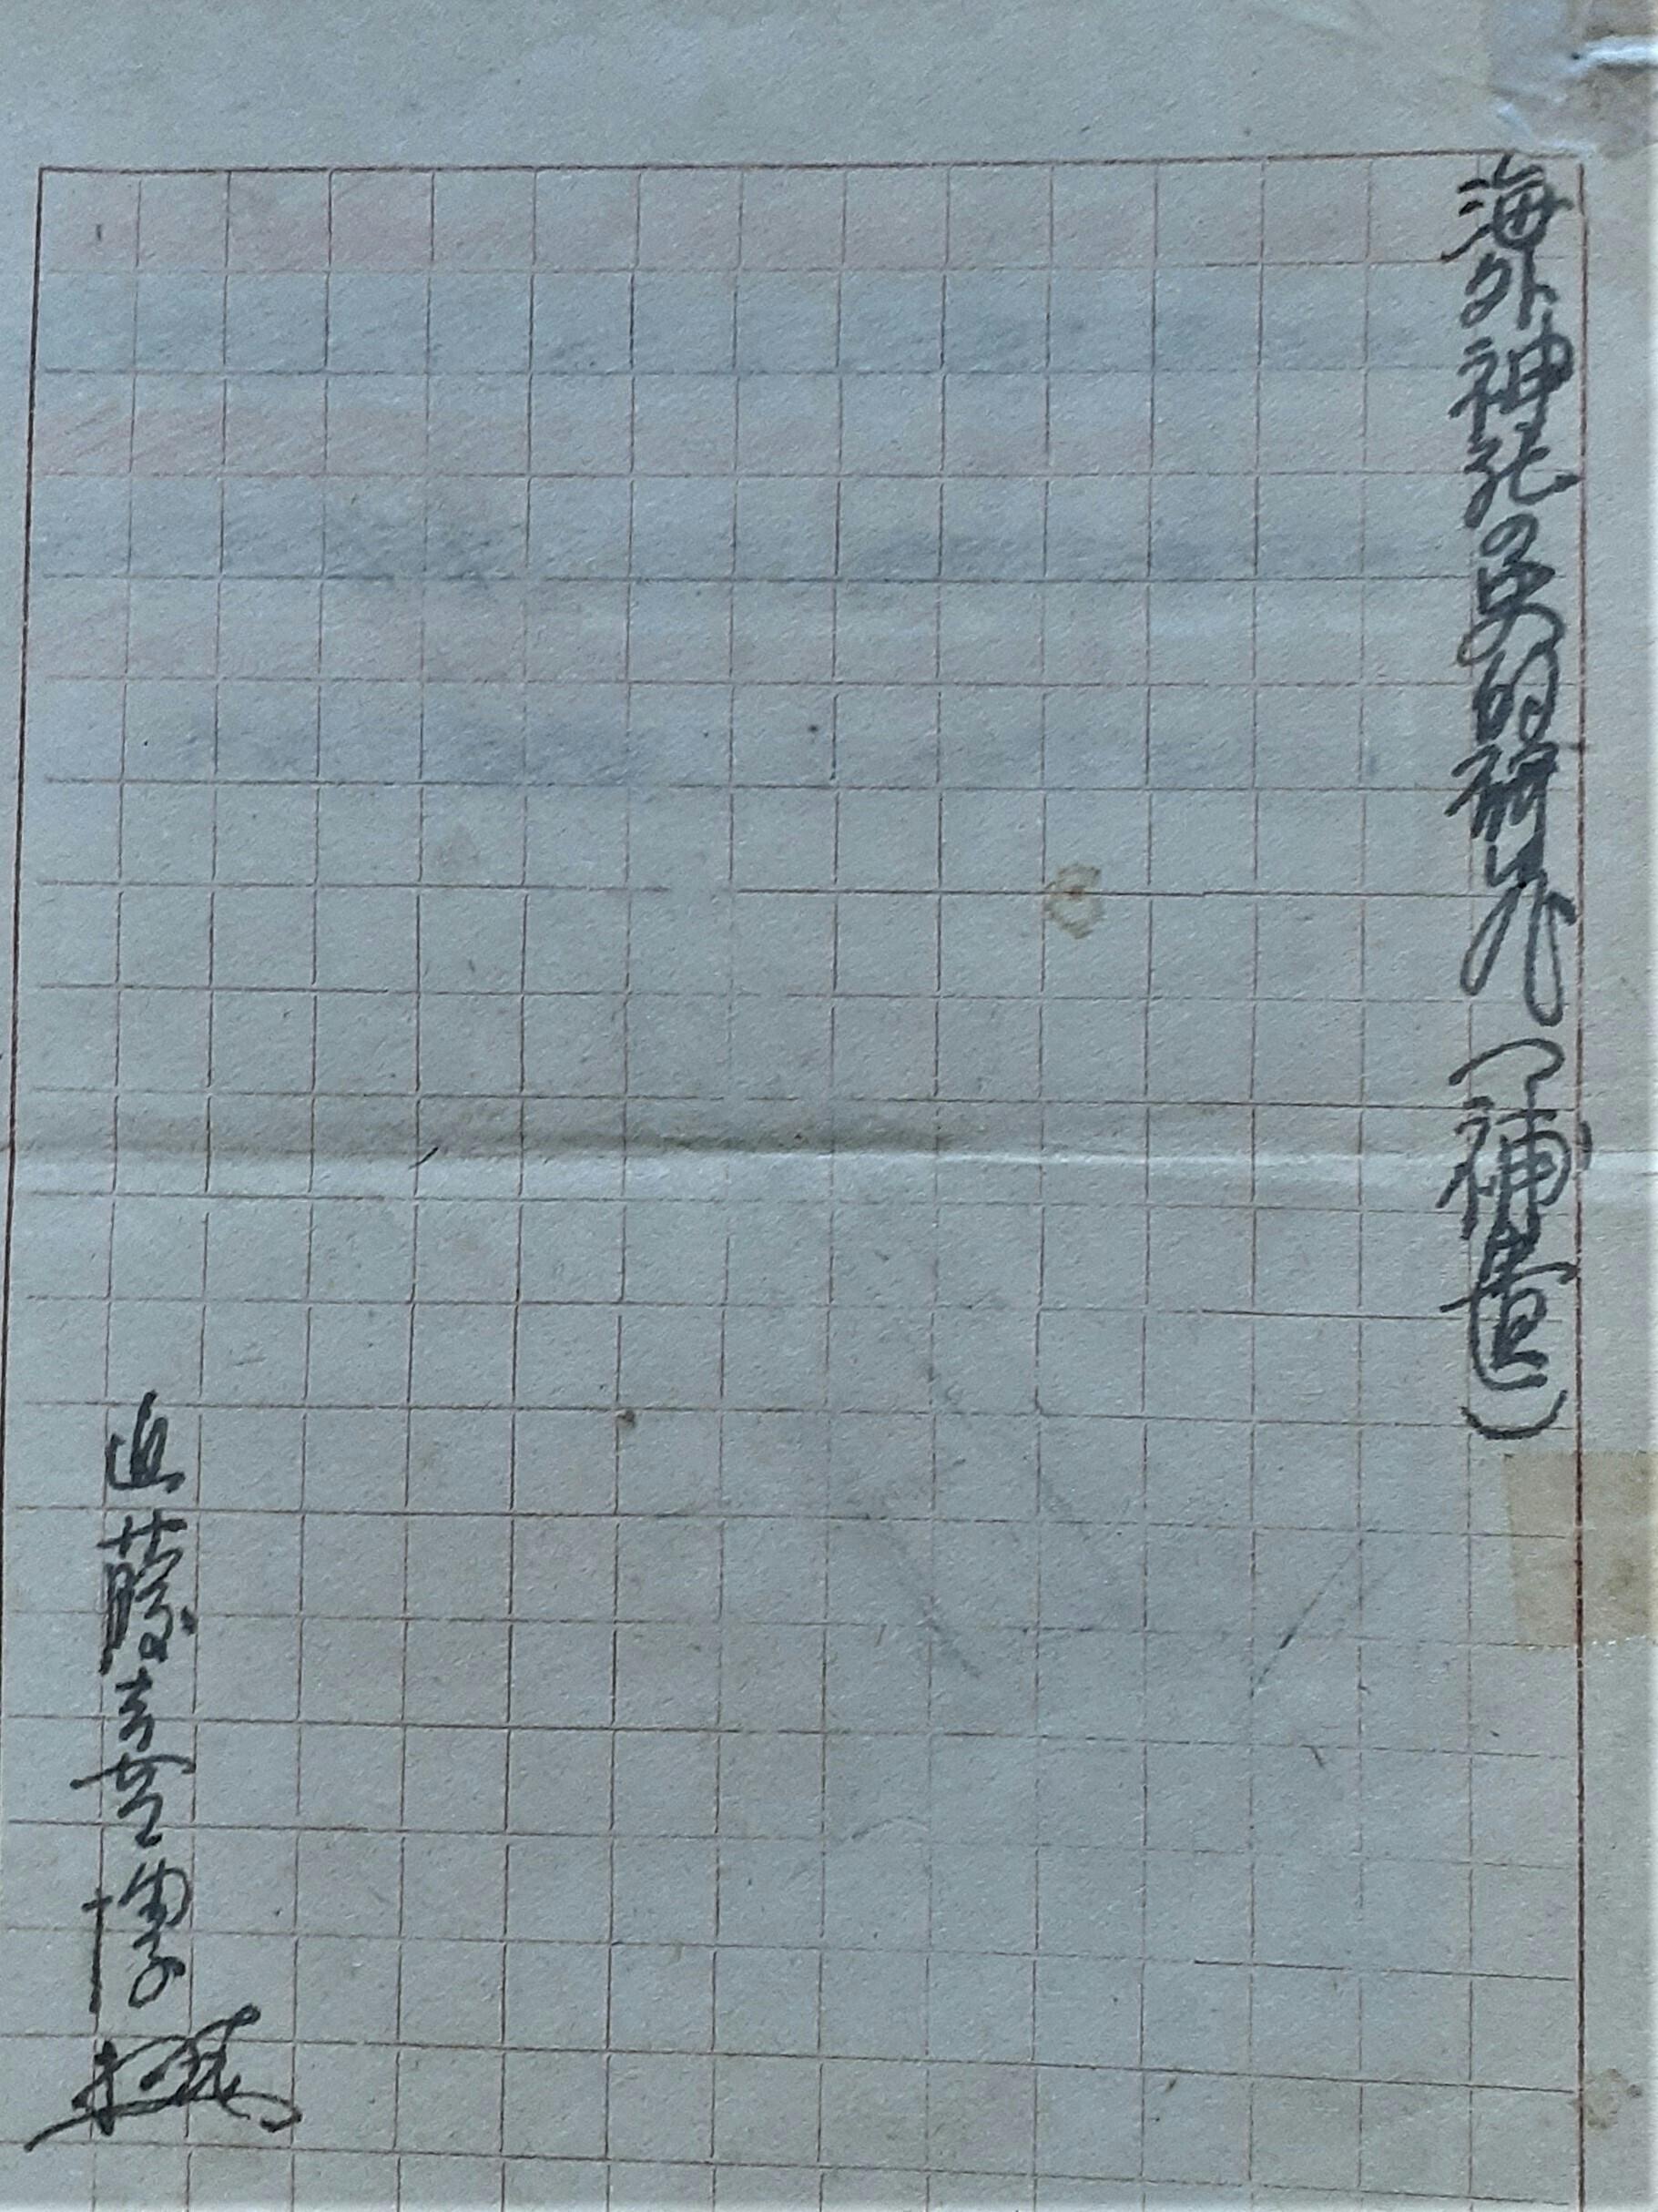 海外神社の史的研究（補遺）
近藤喜博